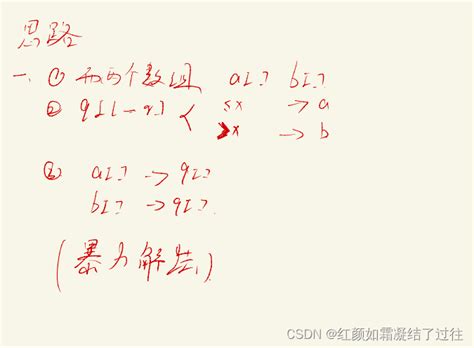 思路
一、① 开两个数组 a[] b[]
② q[l-r] < ≤x → a
>x → b
③ a[] → q[]
b[] → q[]
(暴力解法)
CSDN @红颜如霜凝结了过往